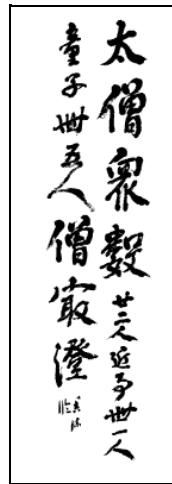 太僧眾數廿二人近事卅一人
童子卅五人僧㝡澄
臨